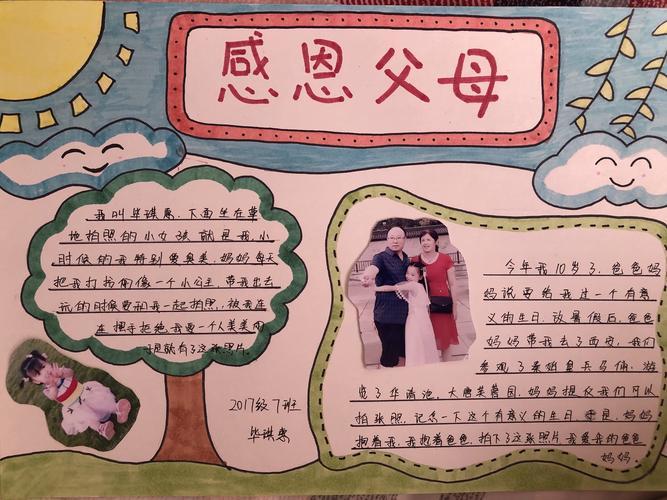 感恩父母
我叫毕琪惠,下面坐在草
地拍照的小女孩就是我,小
时候的我特别爱臭美,妈妈每天
把我打扮的像一个小公主,带我出去
玩的时候要和我一起拍照,被我连
连摆手拒绝,我要一个人美美的
于是就有了这张照片.
2017级7班
毕琪惠
今年我10岁了,爸爸妈
妈说要给我过一个有意
义的生日,放暑假后,爸爸
妈妈带我去了西安,我们
参观了秦始皇兵马俑,游
览了华清池,大唐芙蓉园,妈妈提议我们可以
拍张照,记念一下这个有意义的生日,于是,妈妈
抱着我,我抱着爸爸,拍下了这张照片,我爱我的爸爸
妈妈.